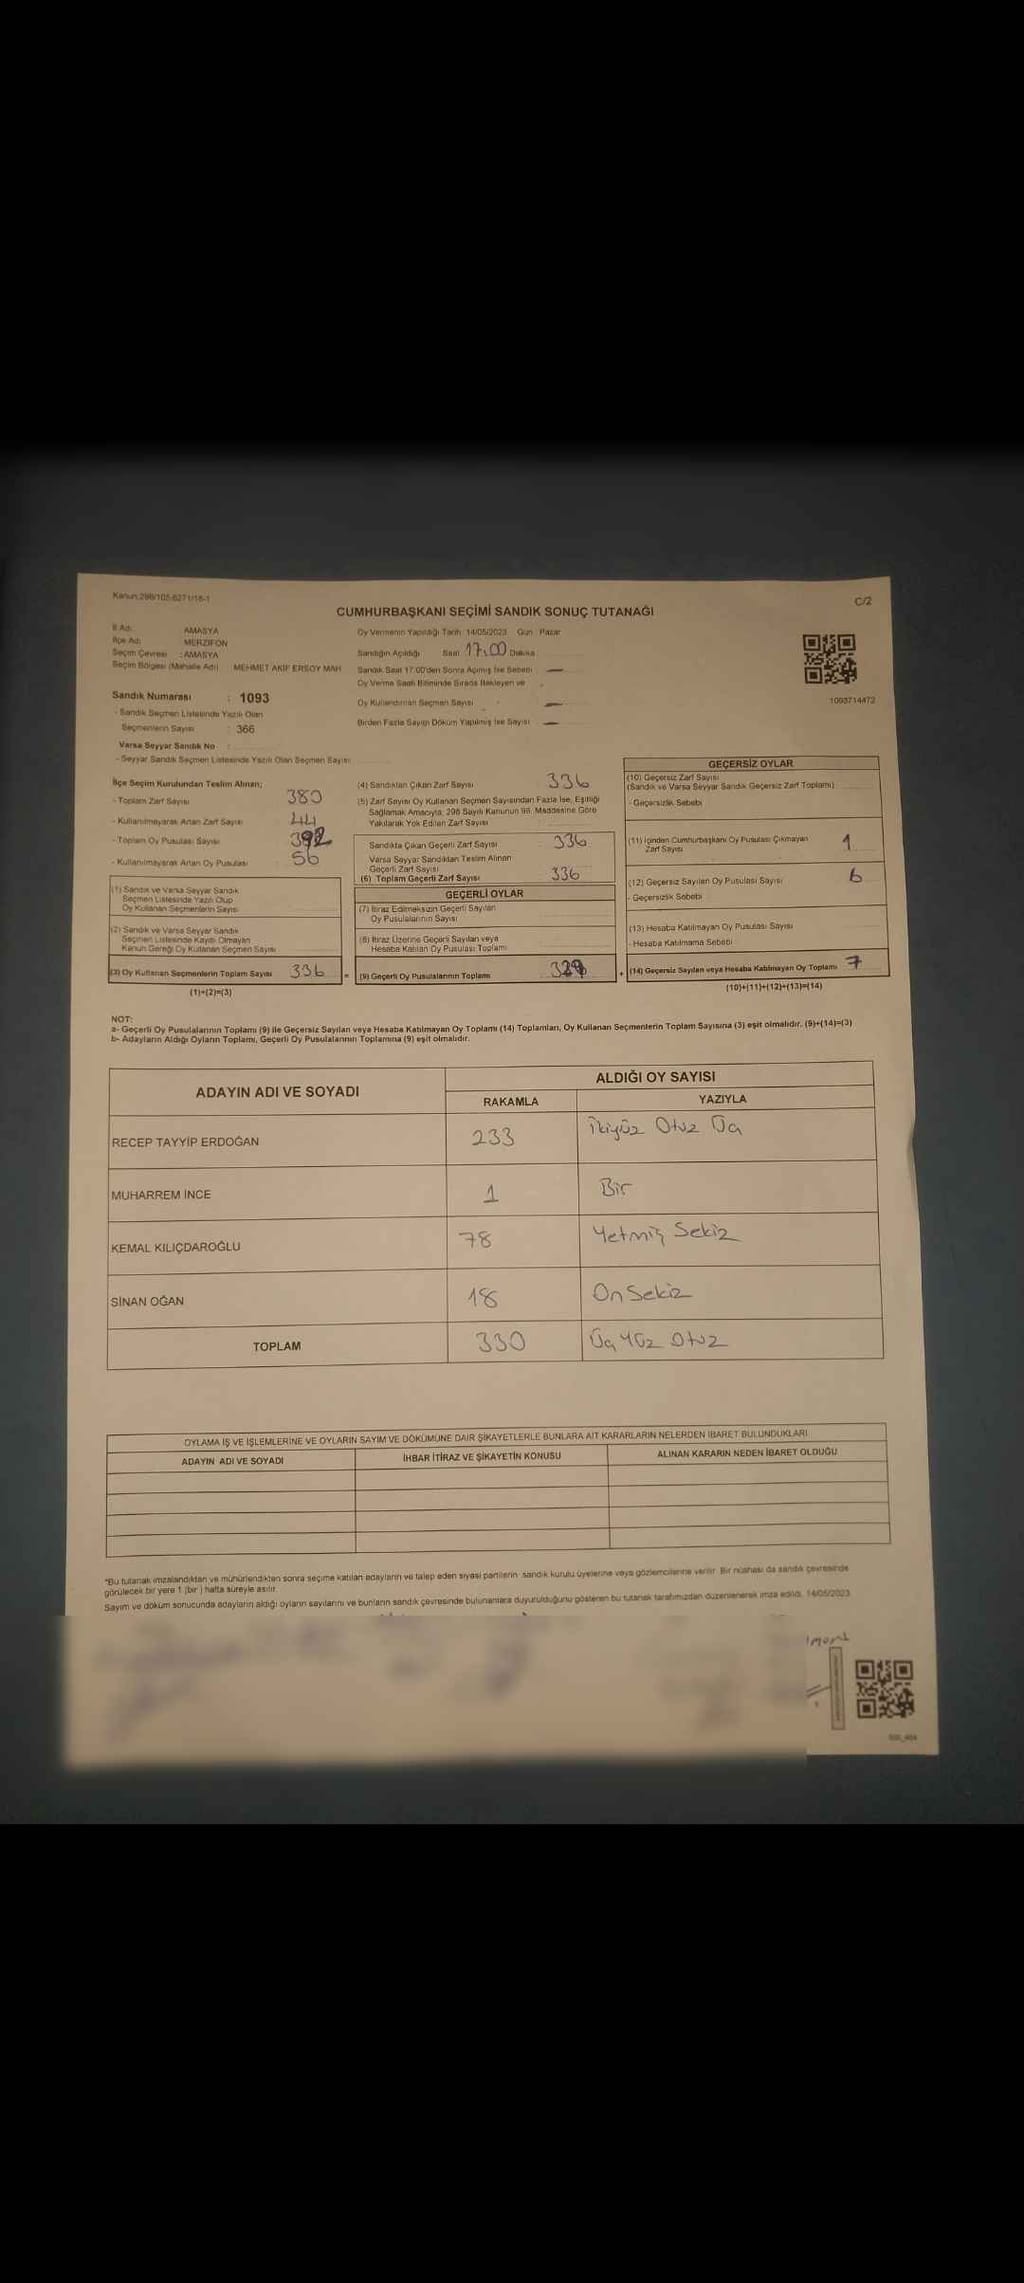 Kanun:298/105-6271/18-1
C/2
CUMHURBAŞKANI SEÇİMİ SANDIK SONUÇ TUTANAĞI
İl Adı : AMASYA
İlçe Adı : MERZİFON
Seçim Çevresi : AMASYA
Seçim Bölgesi (Mahalle Adı) : MEHMET AKİF ERSOY MAH
Sandık Numarası : 1093
- Sandık Seçmen Listesinde Yazılı Olan
Seçmenlerin Sayısı : 366
Varsa Seyyar Sandık No :
- Seyyar Sandık Seçmen Listesinde Yazılı Olan Seçmen Sayısı
Oy Vermenin Yapıldığı Tarih 14/05/2023 Gün Pazar
Sandığın Açıldığı Saat 17:00 Dakika
Sandık Saat 17:00'den Sonra Açılmış İse Sebebi —
Oy Verme Saati Bitiminde Sırada Bekleyen ve
Oy Kullandırılan Seçmen Sayısı —
Birden Fazla Sayım Döküm Yapılmış İse Sayısı —
1093714472
İlçe Seçim Kurulundan Teslim Alınan;
- Toplam Zarf Sayısı 380
- Kullanılmayarak Artan Zarf Sayısı 44
- Toplam Oy Pusulası Sayısı 392
- Kullanılmayarak Artan Oy Pusulası 56
(1) Sandık ve Varsa Seyyar Sandık
Seçmen Listesinde Yazılı Olup
Oy Kullanan Seçmenlerin Sayısı
(2) Sandık ve Varsa Seyyar Sandık
Seçmen Listesinde Kayıtlı Olmayan
Kanun Gereği Oy Kullanan Seçmen Sayısı
(3) Oy Kullanan Seçmenlerin Toplam Sayısı 336
(1)+(2)=(3)
(4) Sandıktan Çıkan Zarf Sayısı 336
(5) Zarf Sayısı Oy Kullanan Seçmen Sayısından Fazla İse, Eşitliği
Sağlamak Amacıyla, 298 Sayılı Kanunun 98. Maddesine Göre
Yakılarak Yok Edilen Zarf Sayısı
Sandıkta Çıkan Geçerli Zarf Sayısı 336
Varsa Seyyar Sandıktan Teslim Alınan
Geçerli Zarf Sayısı
(6) Toplam Geçerli Zarf Sayısı 336
GEÇERLİ OYLAR
(7) İtiraz Edilmeksizin Geçerli Sayılan
Oy Pusulalarının Sayısı
(8) İtiraz Üzerine Geçerli Sayılan veya
Hesaba Katılan Oy Pusulası Toplamı
= (9) Geçerli Oy Pusulalarının Toplamı
GEÇERSİZ OYLAR
(10) Geçersiz Zarf Sayısı
(Sandık ve Varsa Seyyar Sandık Geçersiz Zarf Toplamı)
- Geçersizlik Sebebi
(11) İçinden Cumhurbaşkanı Oy Pusulası Çıkmayan
Zarf Sayısı 1
(12) Geçersiz Sayılan Oy Pusulası Sayısı 6
- Geçersizlik Sebebi
(13) Hesaba Katılmayan Oy Pusulası Sayısı
- Hesaba Katılmama Sebebi
+ (14) Geçersiz Sayılan veya Hesaba Katılmayan Oy Toplamı 7
(10)+(11)+(12)+(13)=(14)
NOT:
a- Geçerli Oy Pusulalarının Toplamı (9) ile Geçersiz Sayılan veya Hesaba Katılmayan Oy Toplamı (14) Toplamları, Oy Kullanan Seçmenlerin Toplam Sayısına (3) eşit olmalıdır. (9)+(14)=(3)
b- Adayların Aldığı Oyların Toplamı, Geçerli Oy Pusulalarının Toplamına (9) eşit olmalıdır.
ADAYIN ADI VE SOYADI
ALDIĞI OY SAYISI
RAKAMLA YAZIYLA
RECEP TAYYİP ERDOĞAN 233 İkiyüz Otuz Üç
MUHARREM İNCE 1 Bir
KEMAL KILIÇDAROĞLU 78 Yetmiş Sekiz
SİNAN OĞAN 18 On Sekiz
TOPLAM 330 Üç Yüz Otuz
OYLAMA İŞ VE İŞLEMLERİNE VE OYLARIN SAYIM VE DÖKÜMÜNE DAİR ŞİKAYETLERLE BUNLARA AİT KARARLARIN NELERDEN İBARET BULUNDUKLARI
ADAYIN ADI VE SOYADI İHBAR İTİRAZ VE ŞİKAYETİN KONUSU ALINAN KARARIN NEDEN İBARET OLDUĞU
*Bu tutanak imzalandıktan ve mühürlendikten sonra seçime katılan adayların ve talep eden siyasi partilerin sandık kurulu üyelerine veya gözlemcilerine verilir. Bir nüshası da sandık çevresinde
görülecek bir yere 1 (bir ) hafta süreyle asılır.
Sayım ve döküm sonucunda adayların aldığı oyların sayılarını ve bunların sandık çevresinde bulunanlara duyurulduğunu gösteren bu tutanak tarafımızdan düzenlenerek imza edildi. 14/05/2023